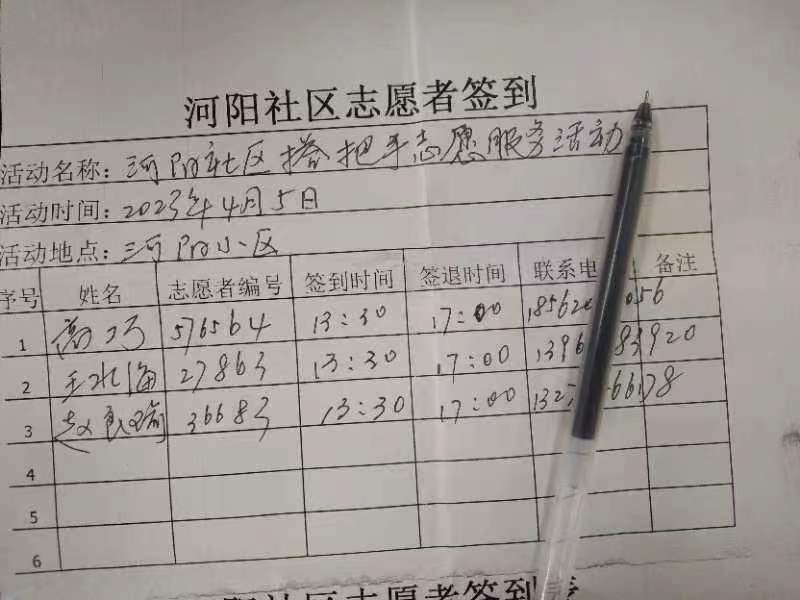 河阳社区志愿者签到
活动名称：河阳社区搭把手志愿服务活动
活动时间：2023年4月5日
活动地点：河阳小区
序号 姓名 志愿者编号 签到时间 签退时间 联系电 备注
1 576564 13:30 17:00
2 王水海 27863 13:30 17:00
3 赵良瑜 36683 13:30 17:00
4
5
6
社区志愿者签到